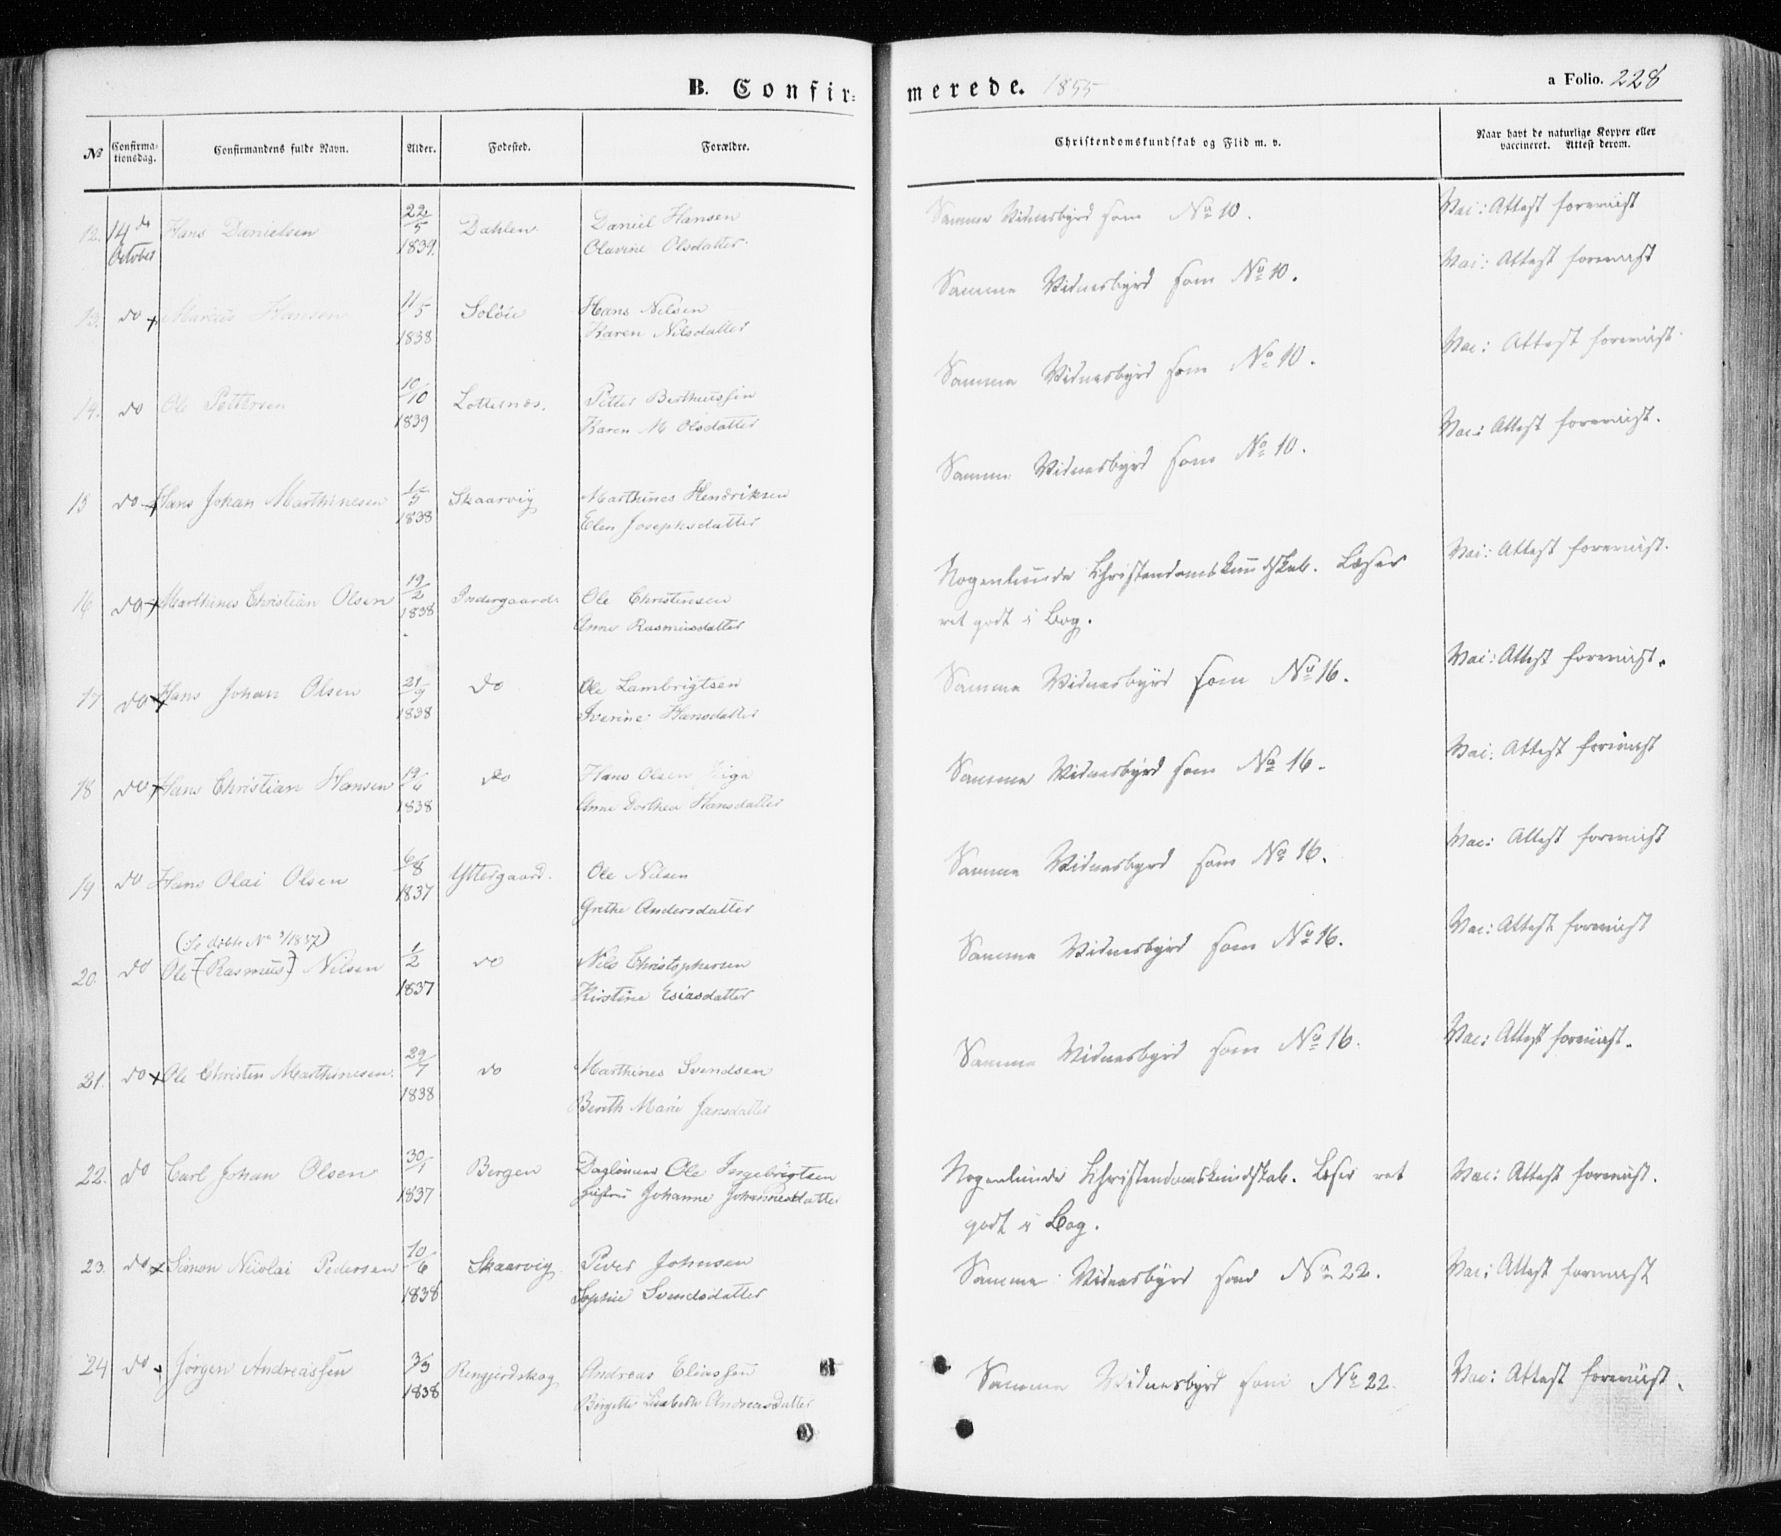 B. Confir=
merede. 1855
a Folio. 228
No Confirma-tionsdag. Confirmandens fulde Navn. Alder. Fødested. Forældre. Christendomskundskab og Flid m. v. Naar havt de naturlige Kopper eller vaccineret. Attest derom.
12. 14de October Hans Danielsen 22/5 1839. Dahlen Daniel Hansen
Olavine Olsdatter Samme Vidnesbyrd som No 10. Vac: Attest foreviist
13. do + Marius Hansen 11/5 1838 Soløie Hans Nilsen
Karen Nilsdatter Samme Vidnesbyrd som No 10. Vac: Attest foreviist
14. do Ole Pettersen 10/10 1839 Petter Bertheussen
Karen M. Olsdatter Samme Vidnesbyrd som No 10. Vac: Attest foreviist
15 do + Hans Johan Marthinesen 1/5 1838 Skaarvig Marthines Hendriksen
Elen Josephsdatter Samme Vidnesbyrd som No 10. Vac: Attest foreviist.
16 do + Marthines Christian Olsen 19/2 1838 Indergaard Ole Christensen
Anne Rasmusdatter Nogenlunde Christendomskundskab. Læser
ret godt i Bog. Vac: Attest foreviist.
17 do + Hans Johan Olsen 21/9 1838 do Ole Lambrigtsen
Iverine Hansdatter Samme Vidnesbyrd som No 16. Vac: Attest foreviist.
18 do + Hans Christian Hansen 1838 do Hans Olsen
Anne Dorthea Hansdatter Samme Vidnesbyrd som No 16. Vac: Attest foreviist
19 do Hans Olai Olsen 6/8 1837 Yttergaard. Ole Nilsen
Grethe Andersdatter Samme Vidnesbyrd som No 16. Vac: Attest foreviist
(Se døbte No 3/1837)
20. do Ole [Rasmus] Nilsen 1/2 1837 do Nils Christophersen
Kirstine Esiasdatter Samme Vidnesbyrd som No 16. Vac: Attest foreviist
21. do + Ole Christen Marthinesen. 29/7 1838 do Marthines Svendsen
Bereth Marie Jansdatter Samme Vidnesbyrd som No 16. Vac: Attest foreviist.
22. do Carl Johan Olsen 30/1 1837 Bergen Daglønner Ole Ingebrigtsen
Hustru Johanne Johannesdatter Nogenlunde Christendomskundskab. Læser ret
godt i Bog. Vac: Attest foreviist.
23. do + Simon Nicolai Pedersen 10/6 1838 Skaarvig Peder Johnsen
Sophie Svendsdatter Samme Vidnesbyrd som No 22. Vac: Attest foreviist
24 do + Jørgen Andreassen 3/3 1838 Andreas Eliassen
Birgitte Lisabeth Andreasdatter Samme Vidnesbyrd som No 22. Vac: Attest foreviist.